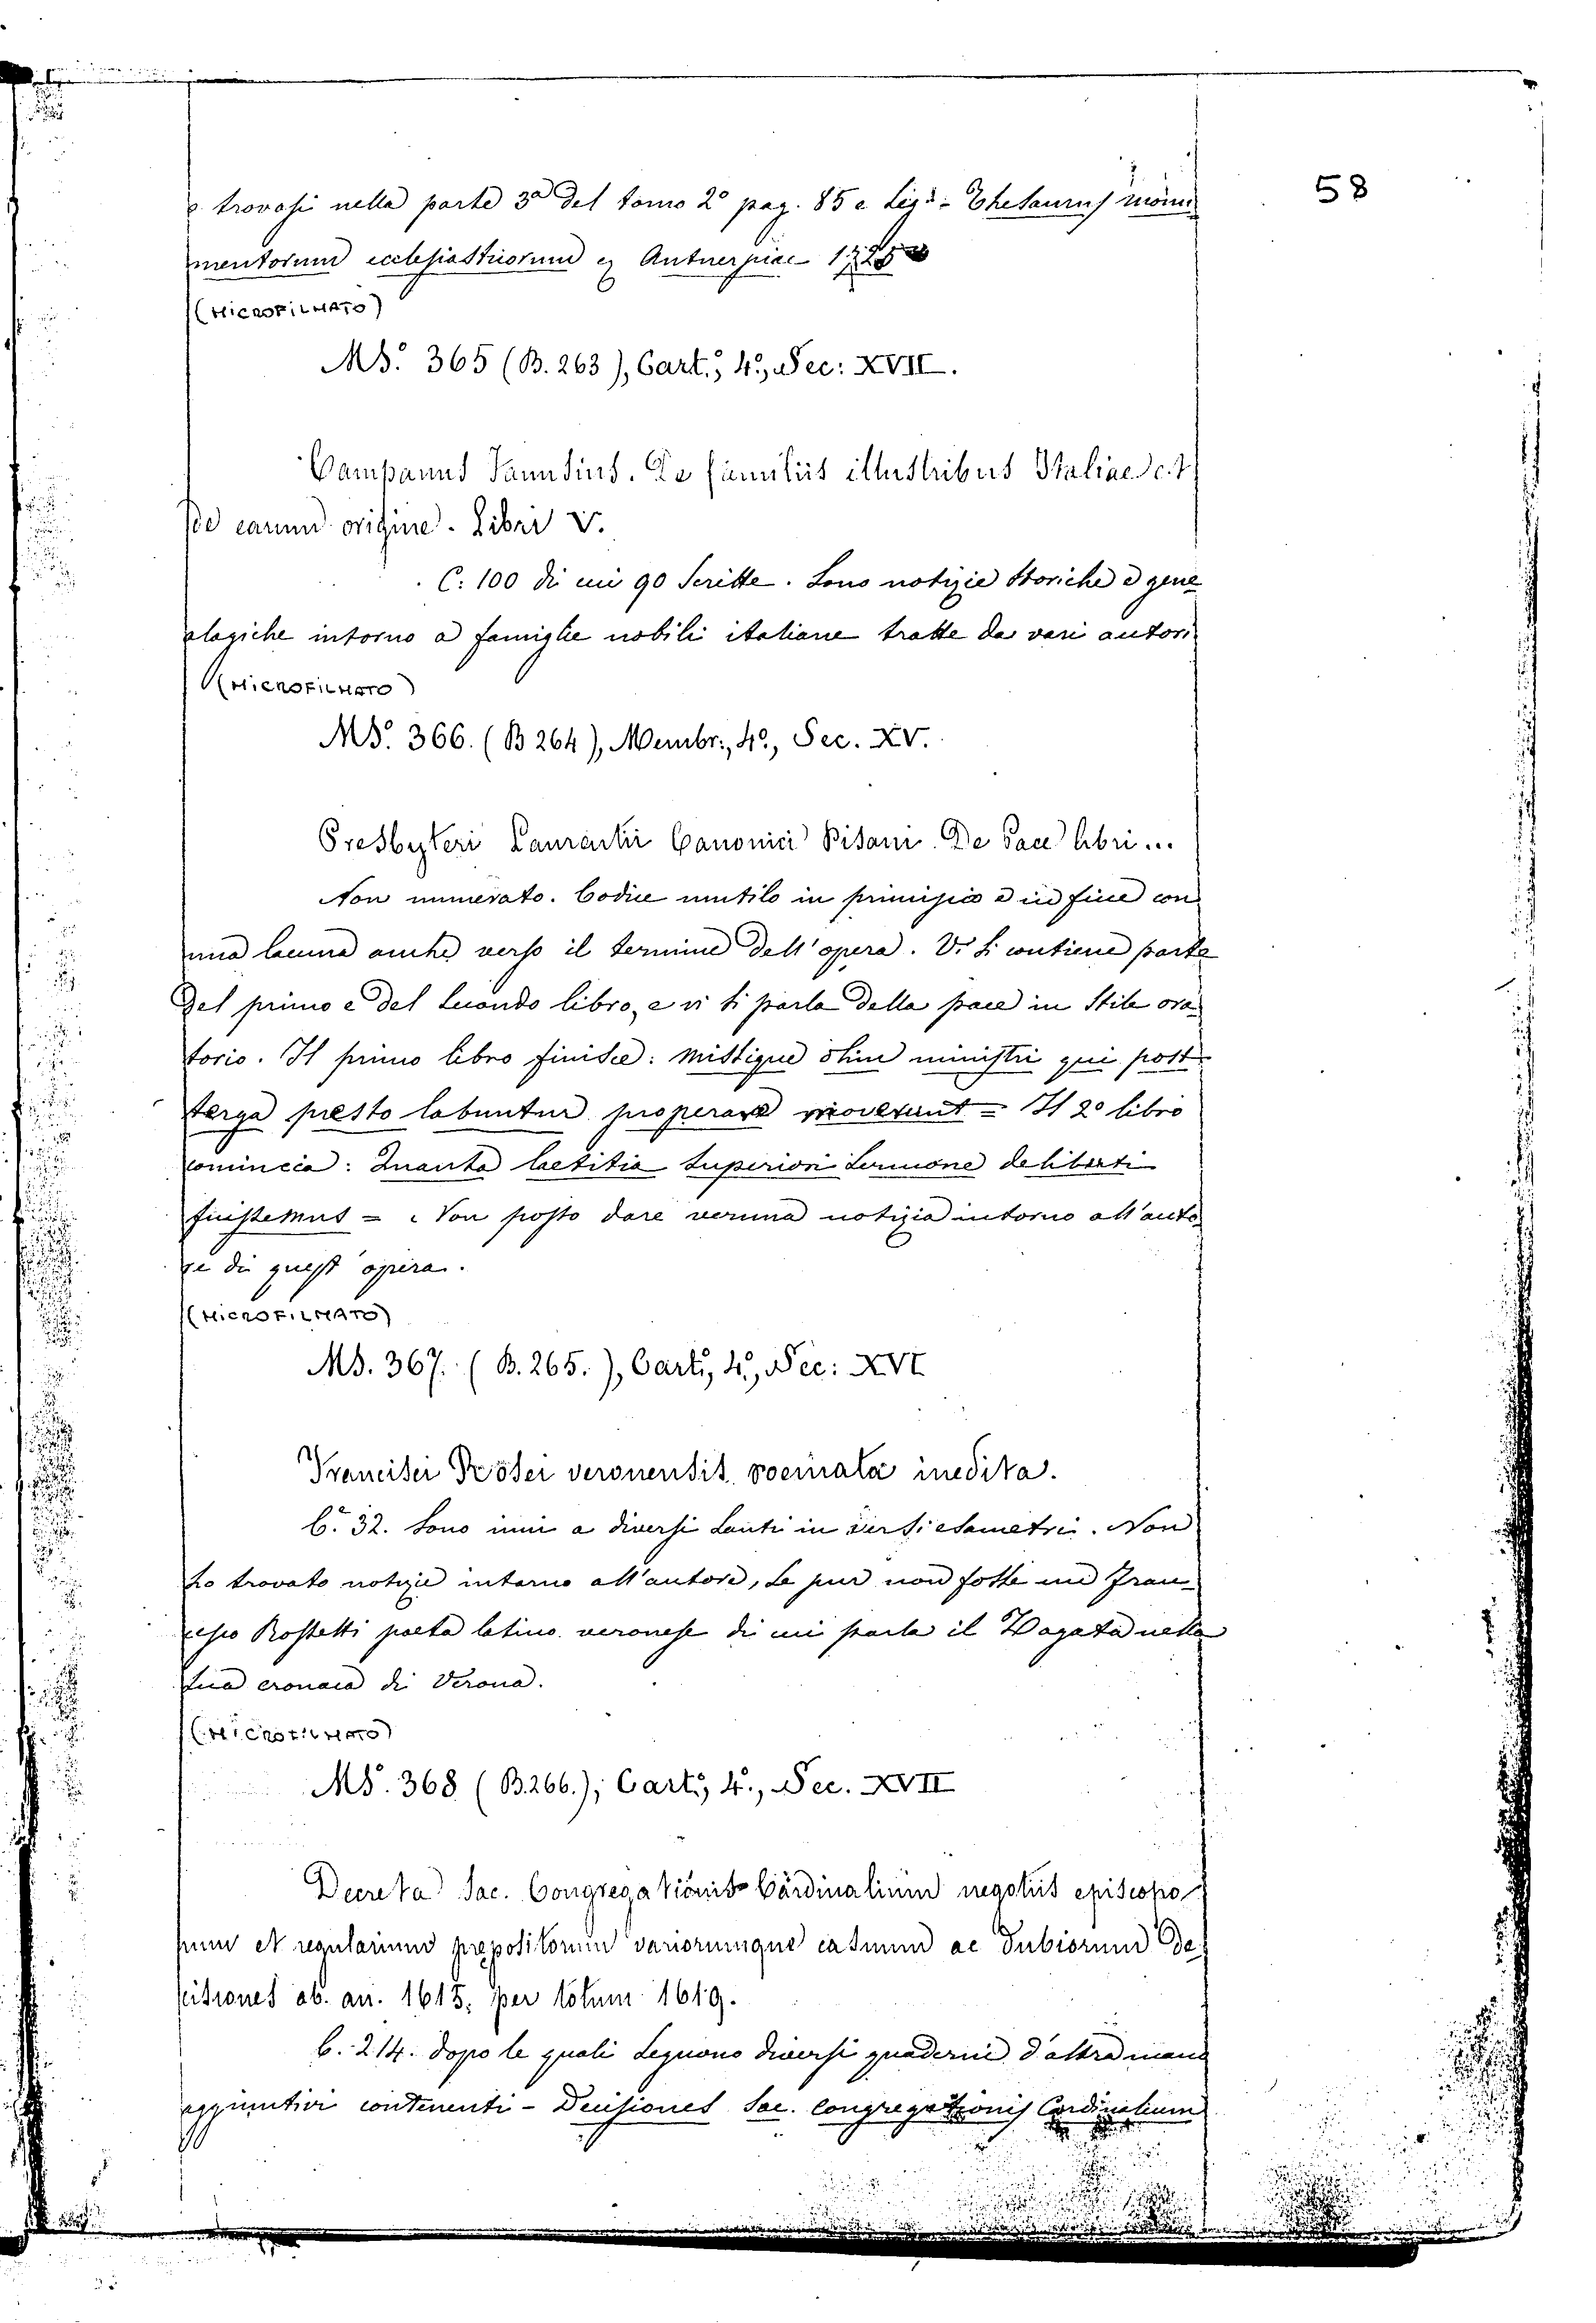 58
e trovasi nella parte 3a del tomo 2o pag. 85 e seg:i = Thesaurus monu
mentorum ecclesiasticorum Antuerpiae
(MICROFILMATO)
MS. 365 (B. 263), Cart., 4o, Sec: XVII.
Campanus Fanusius. De familiis illustribus Italiae et
de earum origine. Libri V.
C. 100 di cui 90 scritte. Sono notizie storiche e gene
alogiche intorno a famiglie nobili italiane tratte da vari autori
(MICROFILMATO)
MS. 366. (B 264), Membr., 4o, Sec. XV.
Presbyteri Laurentii Canonici Pisani. De Pace libri...
Non numerato. Codice mutilo in principio e in fine con
una lacuna anche verso il termine dell'opera. Vi si contiene parte
del primo e del secondo libro, e vi si parla della pace in stile ora
torio. Il primo libro finisce: ministri qui post
terga presto labuntur properare = Il 2o libro
comincia: Quanta laetitia superiori sermone
= Non posso dare veruna notizia intorno all'auto
re di quest'opera.
(MICROFILMATO)
MS. 367. (B. 265.), Cart., 4o, Sec: XVI
Francisci Rosei veronensis poemata inedita.
C. 32. Sono inni a diversi santi in versi esametri. Non
ho trovato notizie intorno all'autore, se pur non fosse un Fran
cesco Rossetti poeta latino veronese di cui parla il Zagata nella
sua cronaca di Verona.
(MICROFILMATO)
MS. 368 (B.266.), Cart., 4o, Sec. XVII
Decreta Sac. Congregationis Cardinalium negotiis episcopo
rum et regularium prepositorum variorumque casuum ac dubiorum de
cisiones ab. an. 1615. per totum 1619.
C. 214. dopo le quali seguono diversi quaderni d'altra mano
aggiuntivi contenenti - Decisiones Sac. Congregationis Cardinalium